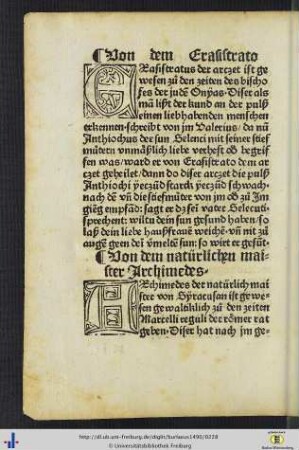 ¶Von dem Erasistrato
ERasistratus der arczet ist ge
wesen zů den zeiten des bischo
fes der judē Onyas. Diser als
mā lißt der kund an der pulß
einen liebhabenden menschen
erkennen. schreibt von jm Valerius / da nū
Anthiochus der sun Seleuci mit seiner stief
můtern vnmäßlich liebe verhefft vñ begrif
fen was / ward er von Erasistrato dem ar
czet geheilet / dann do diser arczet die pulß
Anthiochi yeczūd starck / yeczūd schwach
nach dē vñ die stiefmůter von jm oð zů jm
gieng empfād: sagt er dysez vater Seleuci
sprechent: wiltu dein sun gesund haben / so
laß dein liebe haußfrauē weichē. vñ nit zů
augē geen dē sun: so wirt er gesūt.
¶Von dem natürlichen mai-
ster Archimedes.
ARchimedes der natürlich mai
ster von Syracusan ist gewe
sen gewaltiklich zů den zeiten
Marcelli reguli der römer rat
geben. Diser hat nach jm ge-
http://dl.ub.uni-freiburg.de/diglit/burlaeus1490/0228
© Universitätsbibliothek Freiburg